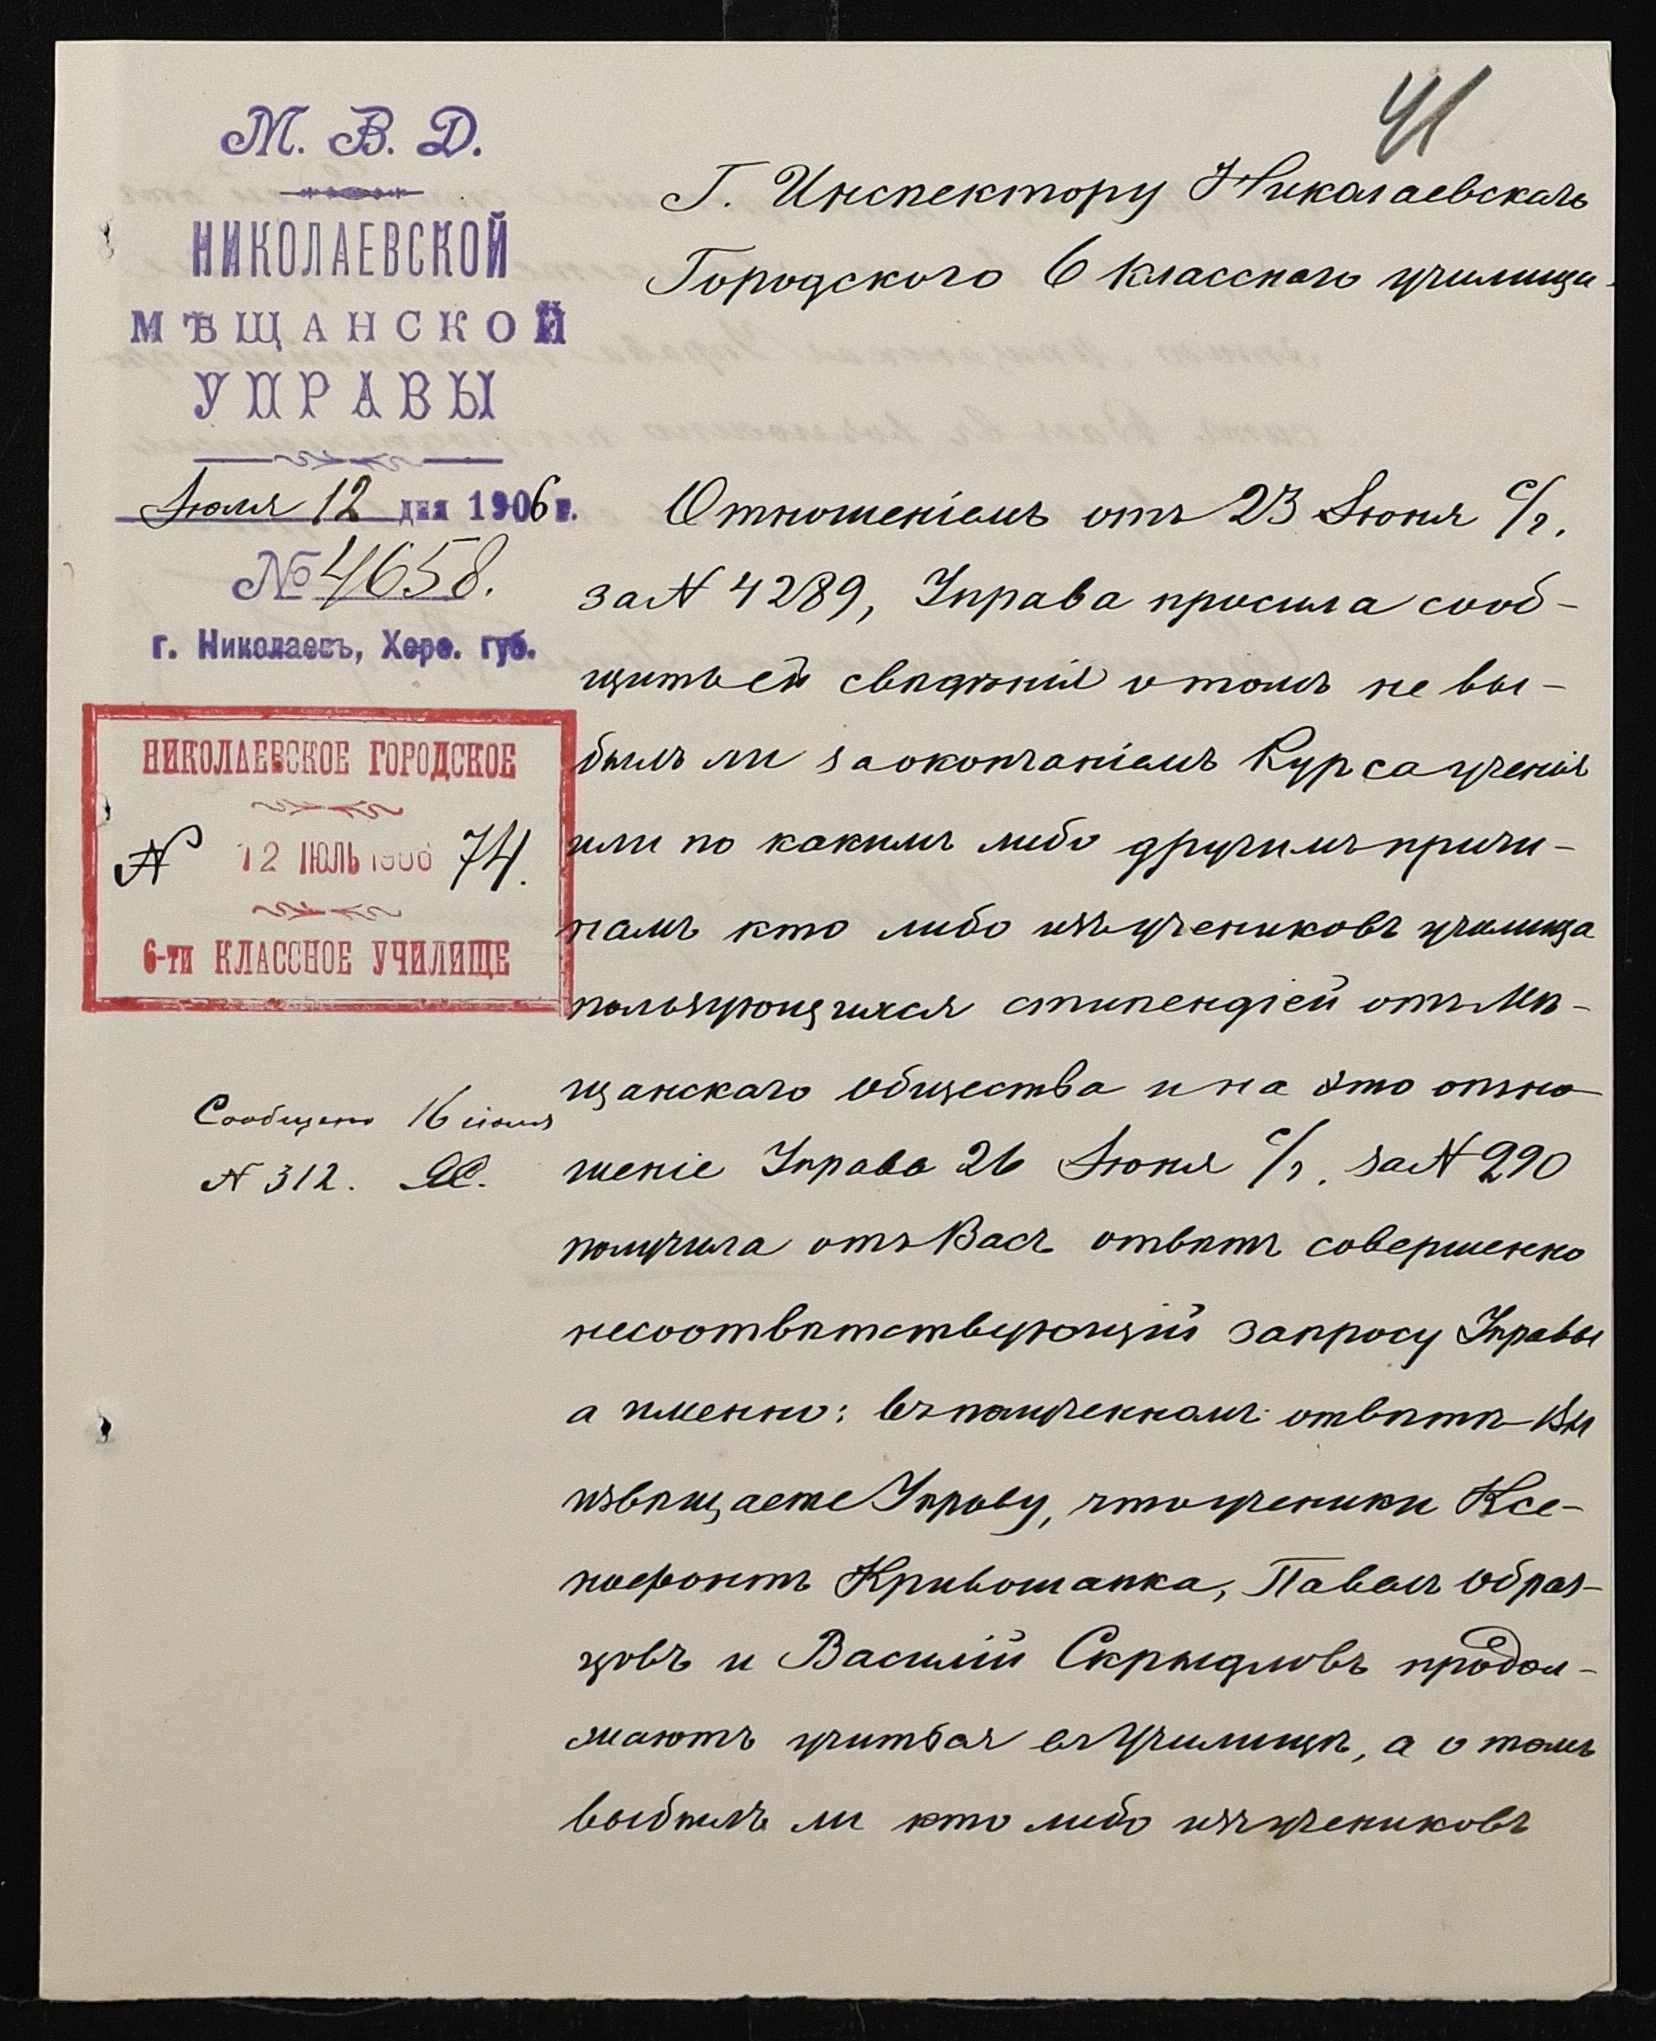 41
М. В. Д.
НИКОЛАЕВСКОЙ
МѢЩАНСКОЙ
УПРАВЫ
Июля 12 дня 1906 г.
№ 4658.
г. Николаевъ, Херс. губ.
НИКОЛАЕВСКОЕ ГОРОДСКОЕ
N 12 ІЮЛЬ 1906 74.
6-ти КЛАССНОЕ УЧИЛИЩЕ
Сообщено 16 іюля
N 312.
Г. Инспектору Николаевскаго
Городского 6 классного училища.
Отношеніемъ отъ 23 Июня с/г.
за N 4289, Управа просила сооб-
щить ей свѣдѣнія о томъ не вы-
былъ ли за окончаніемъ курса ученія
или по какимъ либо другимъ причи-
намъ кто либо изъ учениковъ училища
пользующихся стипендіей отъ Мѣ-
щанскаго общества и на это отно-
шеніе Управа 26 Июня с/г. за N 290
получила отъ Васъ отвѣтъ совершенно
несоотвѣтствующій запросу Управы
а именно: въ полученномъ отвѣтѣ Вы
извѣщаете Управу, что ученики Ксе-
нофонтъ Кривошапка, Павелъ Образ-
цовъ и Василій Скрыдловъ продол-
жаютъ учиться въ Училищѣ, а о томъ
выбылъ ли кто либо изъ учениковъ